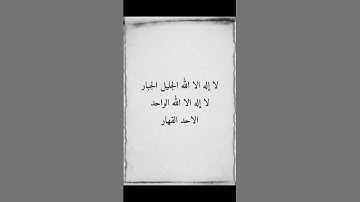 لا إله الا الله الجليل الجبار
لا إله الا الله الواحد
الاحد القهار